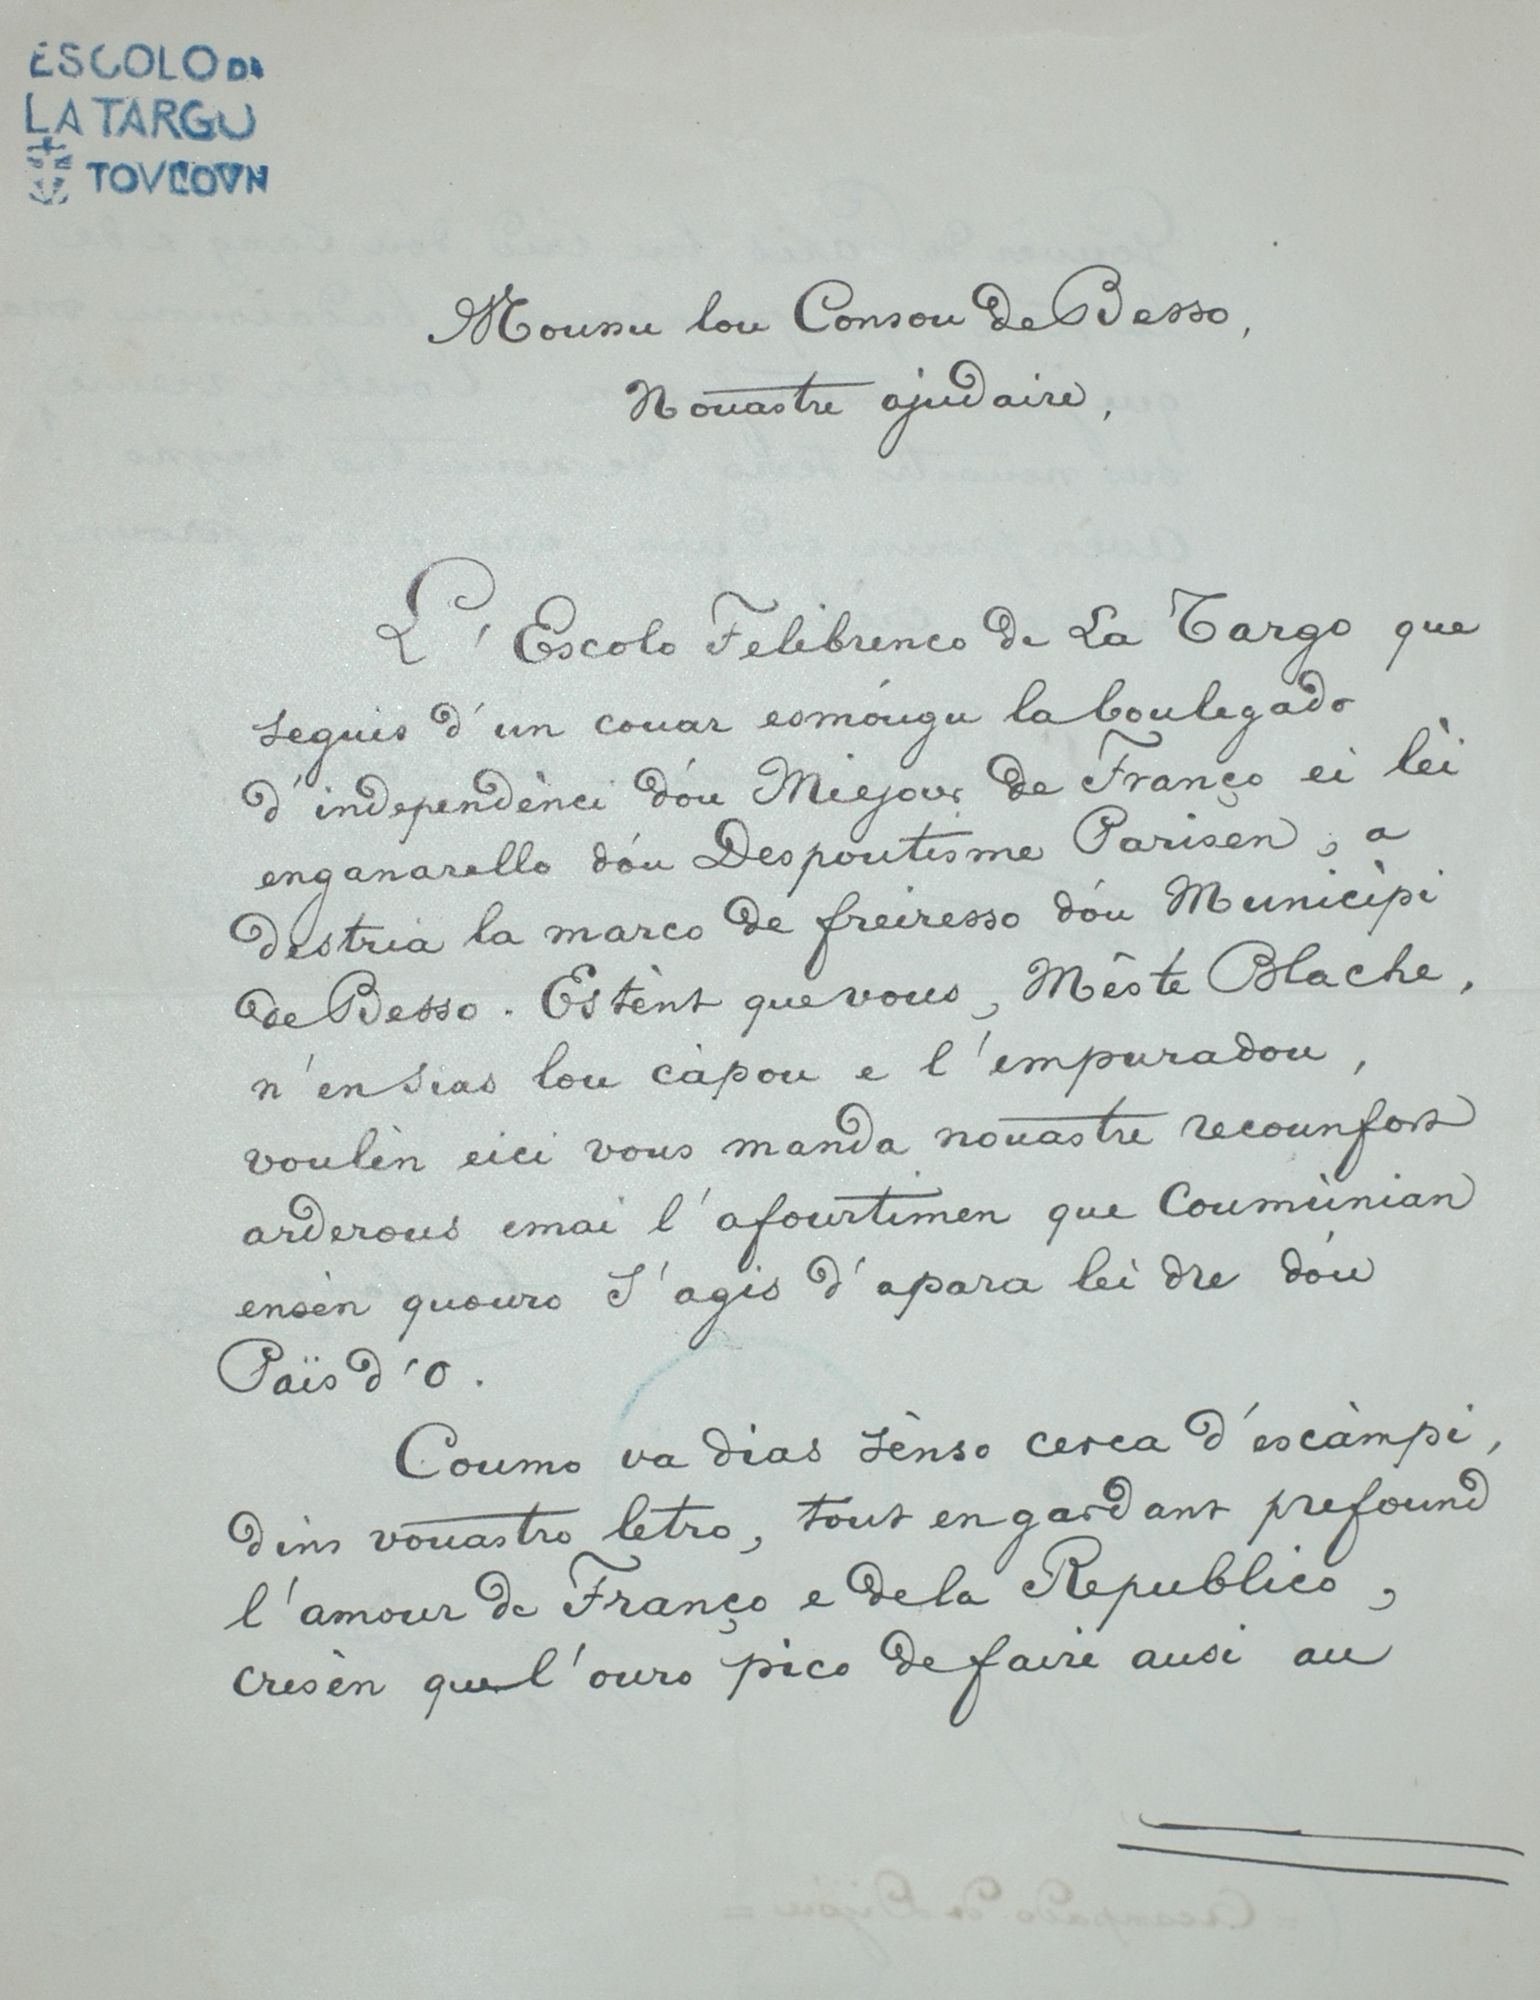 ESCOLO DE
LA TARGO
TOVLOVN
Moussu lou Consou de Besso,
Nouastre ajudaire,
L'Escolo Felibrenco de La Targo que
seguis d'un couar esmóugu la boulegado
d'independènci dóu Miejour de Franço ei lèi
enganarello dóu Despoutisme Parisen, a
destria la marco de freiresso dóu Municìpi
de Besso. Estènt que vous, Mèste Blache,
n'en sias lou càpou e l'empuradou,
voulèn eici vous manda nouastre recounfort
arderous emai l'afourtimen que Coumùnian
ensèn quouro s'agis d'apara lei dre dóu
Païs d'O.
Coumo va dias sènso cerca d'escàmpi,
dins vouastro letro, tout en gardant prefound
l'amour de Franço e de la Republico,
cresèn que l'ouro pico de faire ausi au